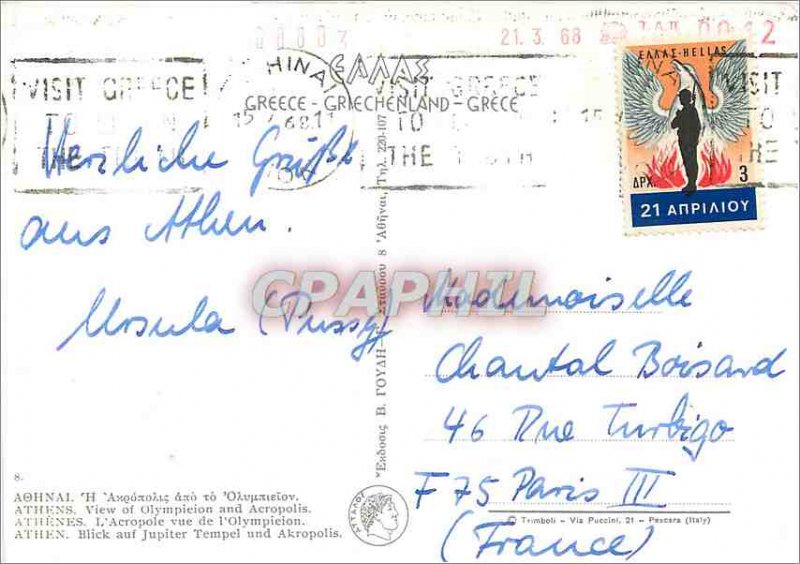 21.3.68
00.12
VISIT GREECE
TO
THE
ATHINAI
ΕΛΛΑΣ
GREECE - GRIECHENLAND - GRECE
VISIT GREECE
TO
THE
VISIT
TO
THE
ΕΛΛΑΣ-HELLAS
ΔΡΧ. 3
21 ΑΠΡΙΛΙΟΥ
Herzliche Grüße
aus Athen.
Ursula (Pussy)
Mademoiselle
Chantal Boisard
46 Rue Turbigo
F 75 Paris III
(France)
Ἔκδοσις Β. ΓΟΥΔΗ - Σταδίου 8 Ἀθῆναι, Τηλ. 220-107
CPAPHIL
8.
ΑΘΗΝΑΙ. Ἡ Ἀκρόπολις ἀπὸ τὸ Ὀλυμπιεῖον.
ATHENS. View of Olympieion and Acropolis.
ATHÈNES. L'Acropole vue de l'Olympieion.
ATHEN. Blick auf Jupiter Tempel und Akropolis.
ΑΤΤΑΛΟΣ
© Trimboli - Via Puccini, 21 - Pescara (Italy)